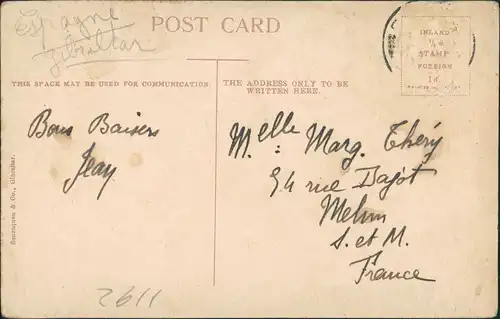 Espagne
Gibraltar
POST CARD
INLAND
½d
STAMP
FOREIGN
1d.
THIS SPACE MAY BE USED FOR COMMUNICATION
THE ADDRESS ONLY TO BE
WRITTEN HERE.
Bons Baisers
Jean
Melle Marg. Théry
94 rue Dajot
Melun
S. et M.
France
Beanquen & Co., Gibraltar.
2611